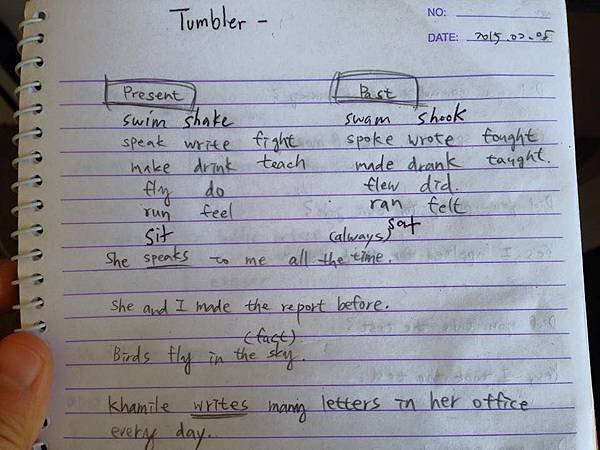 Tumbler -
NO:
DATE: 2015.02.05
Present Past
swim shake swam shook
speak write fight spoke wrote fought
make drink teach made drank taught.
fly do flew did.
run feel ran felt
sit sat
(always)
She speaks to me all the time.
She and I made the report before.
(fact)
Birds fly in the sky.
Khamile writes many letters in her office
every day.